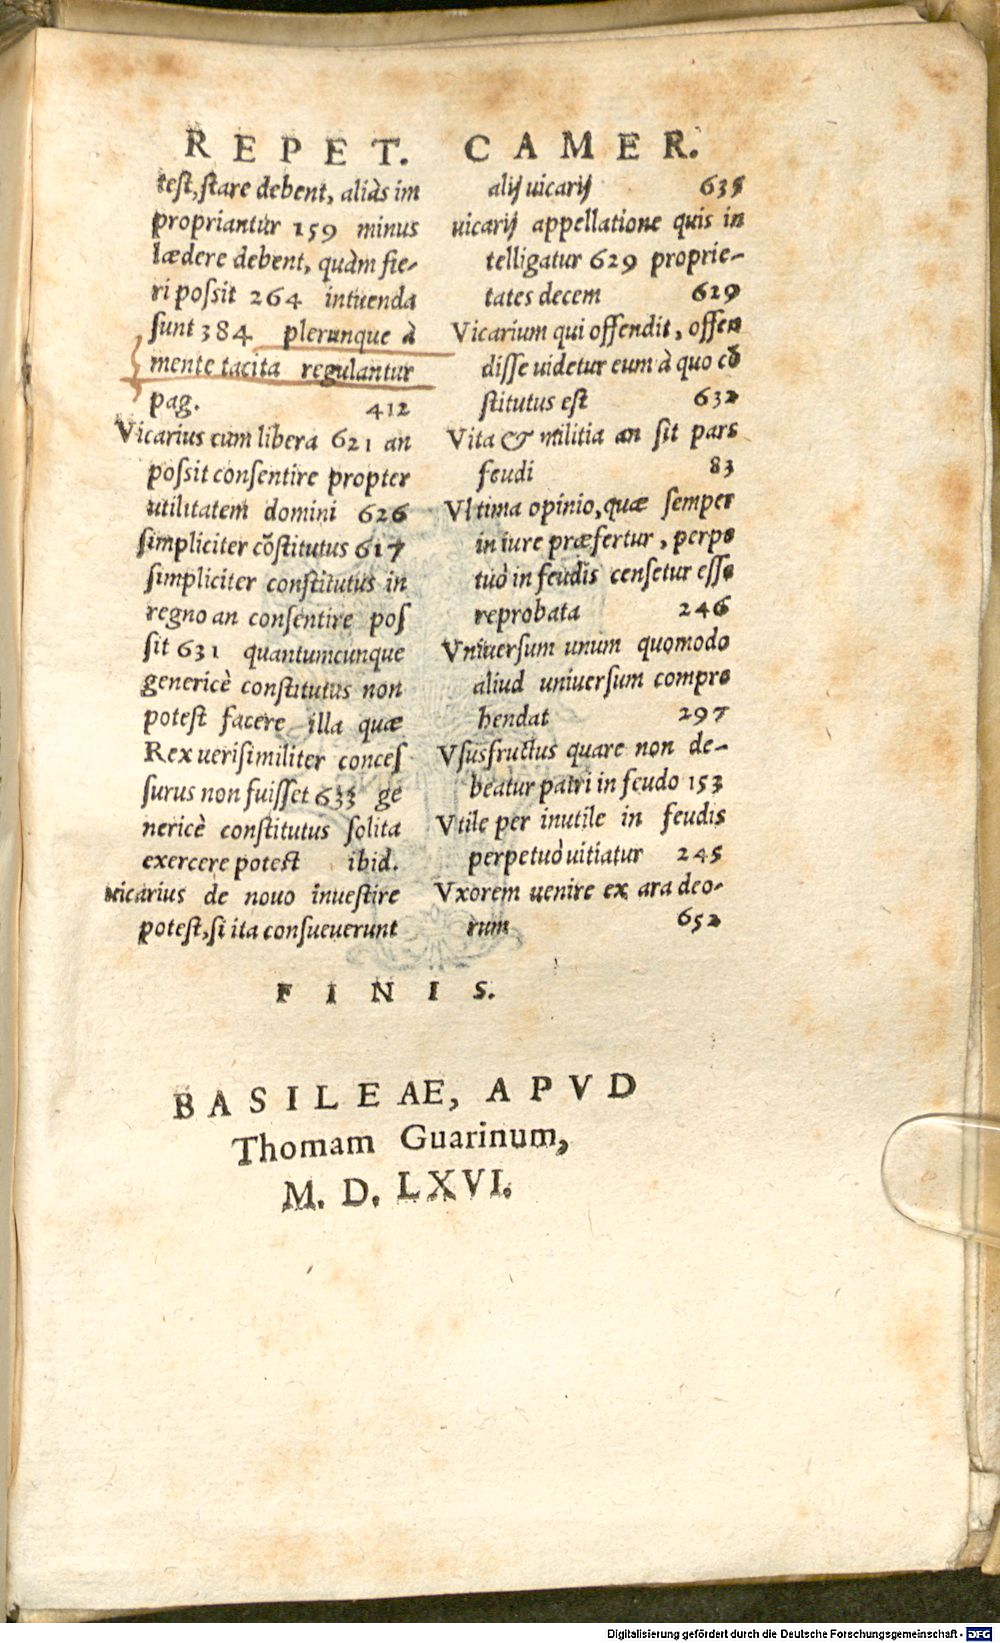 REPET. CAMER.
teſt, ſtare debent, aliàs im
propriantur 159 minus
lædere debent, quàm fie-
ri poſsit 264 intuenda
ſunt 384 plerunque à
mente tacita regulantur
pag. 412
Vicarius cum libera 621 an
poſsit conſentire propter
utilitatem domini 626
ſimpliciter cõſtitutus 617
ſimpliciter conſtitutus in
regno an conſentire poſ
ſit 631 quantumcunque
genericè conſtitutus non
poteſt facere illa quæ
Rex ueriſimiliter conceſ
ſurus non fuiſſet 633 ge
nericè conſtitutus ſolita
exercere poteſt ibid.
uicarius de nouo inueſtire
poteſt, ſi ita conſueuerunt
alij uicarij 635
uicarij appellatione quis in
telligatur 629 proprie-
tates decem 629
Vicarium qui offendit, offen
diſſe uidetur eum à quo cõ
ſtitutus eſt 632
Vita & militia an ſit pars
feudi 83
Vltima opinio, quæ ſemper
in iure præfertur, perpe
tuò in feudis cenſetur eſſe
reprobata 246
Vniuerſum unum quomodo
aliud uniuerſum compre
hendat 297
Vſusfructus quare non de-
beatur patri in feudo 153
Vtile per inutile in feudis
perpetuò uitiatur 245
Vxorem uenire ex ara deo-
rum 652
FINIS.
BASILEAE, APVD
Thomam Guarinum,
M. D. LXVI.
Digitalisierung gefördert durch die Deutsche Forschungsgemeinschaft - DFG